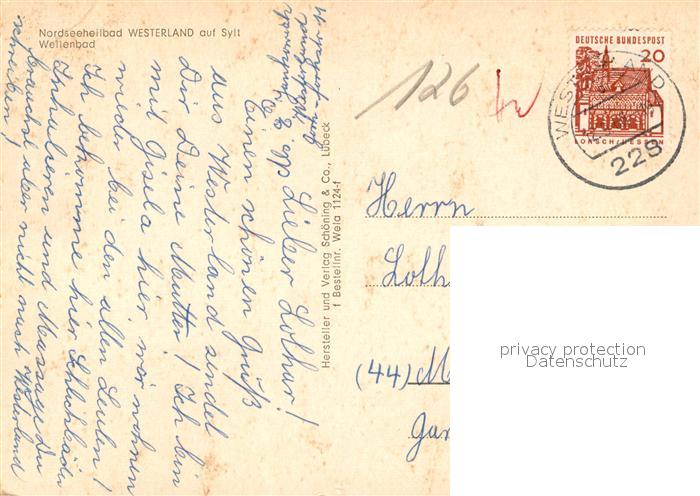 Nordseeheilbad WESTERLAND auf Sylt
Wellenbad
Lieber Lothar!
Einen schönen Gruß
aus Westerland sendet
Dir Deine Mutter! Ich bin
mit Gisela hier, wir wohnen
wieder bei den alten Leuten!
Ich bekomme hier Schlickbäder
Inhalieren und Massage Du
brauchst aber nicht nach Westerland
schreiben!
Hersteller und Verlag Schöning & Co., Lübeck
f Bestellnr. Wela 1124-f
126
DEUTSCHE BUNDESPOST
20
LORSCH/HESSEN
WESTERLAND
228
Herrn
Loth
(44) M
Gar
privacy protection
Datenschutz